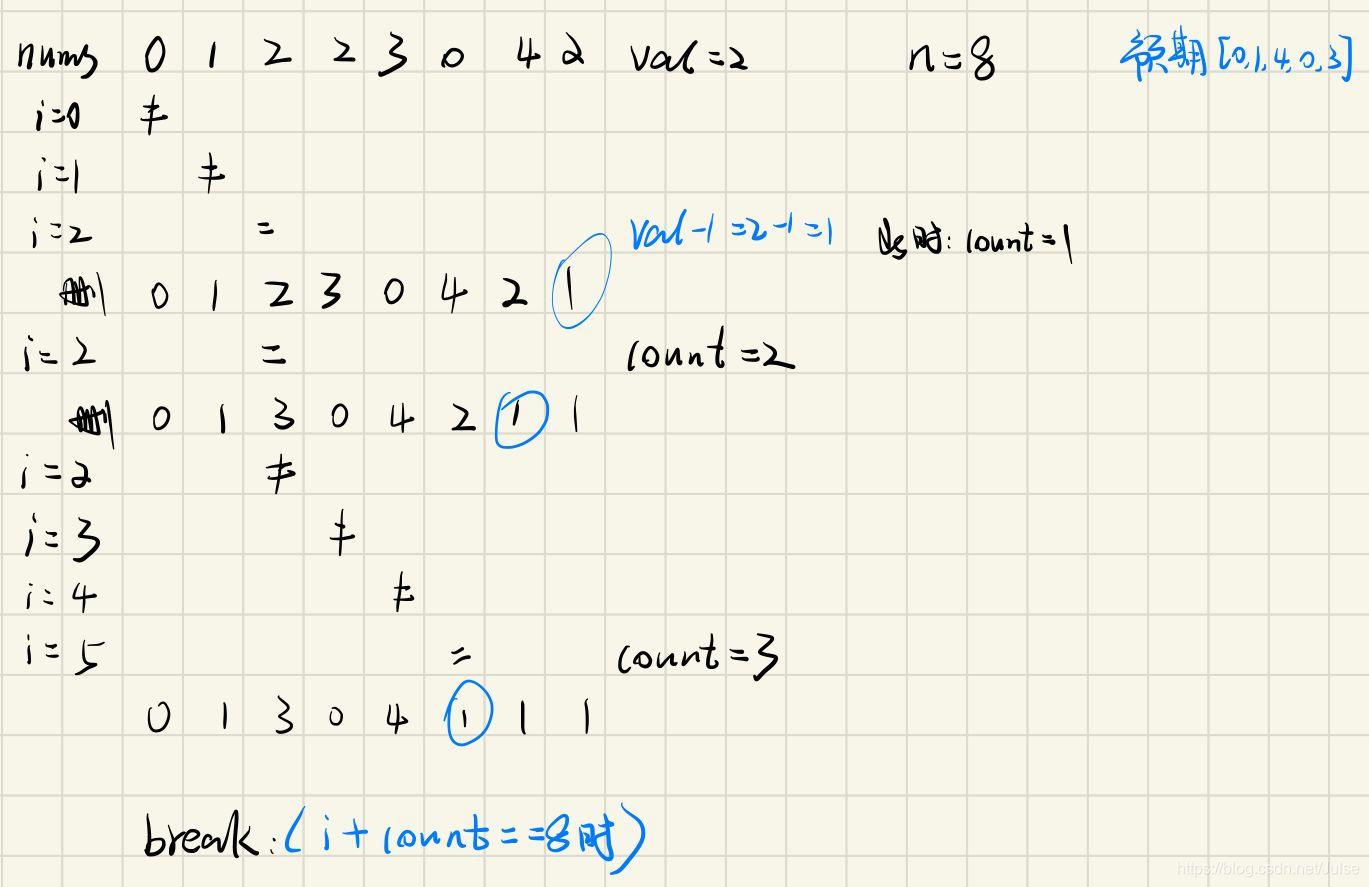 nums 0 1 2 2 3 0 4 2 val=2 n=8 预期[0,1,4,0,3]
i=0 ≠
i=1 ≠
i=2 = val-1=2-1=1 此时: count=1
删 0 1 2 3 0 4 2 1
i=2 = count=2
删 0 1 3 0 4 2 1 1
i=2 ≠
i=3 ≠
i=4 ≠
i=5 = count=3
0 1 3 0 4 1 1 1
break:(i+counts==8时)
https://blog.csdn.net/Julse